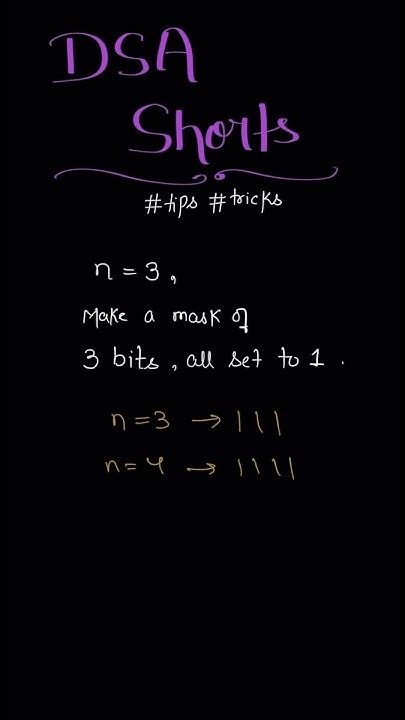 DSA
Shorts
#tips #tricks
n = 3,
Make a mask of
3 bits, all set to 1.
n=3 → 111
n=4 → 1111